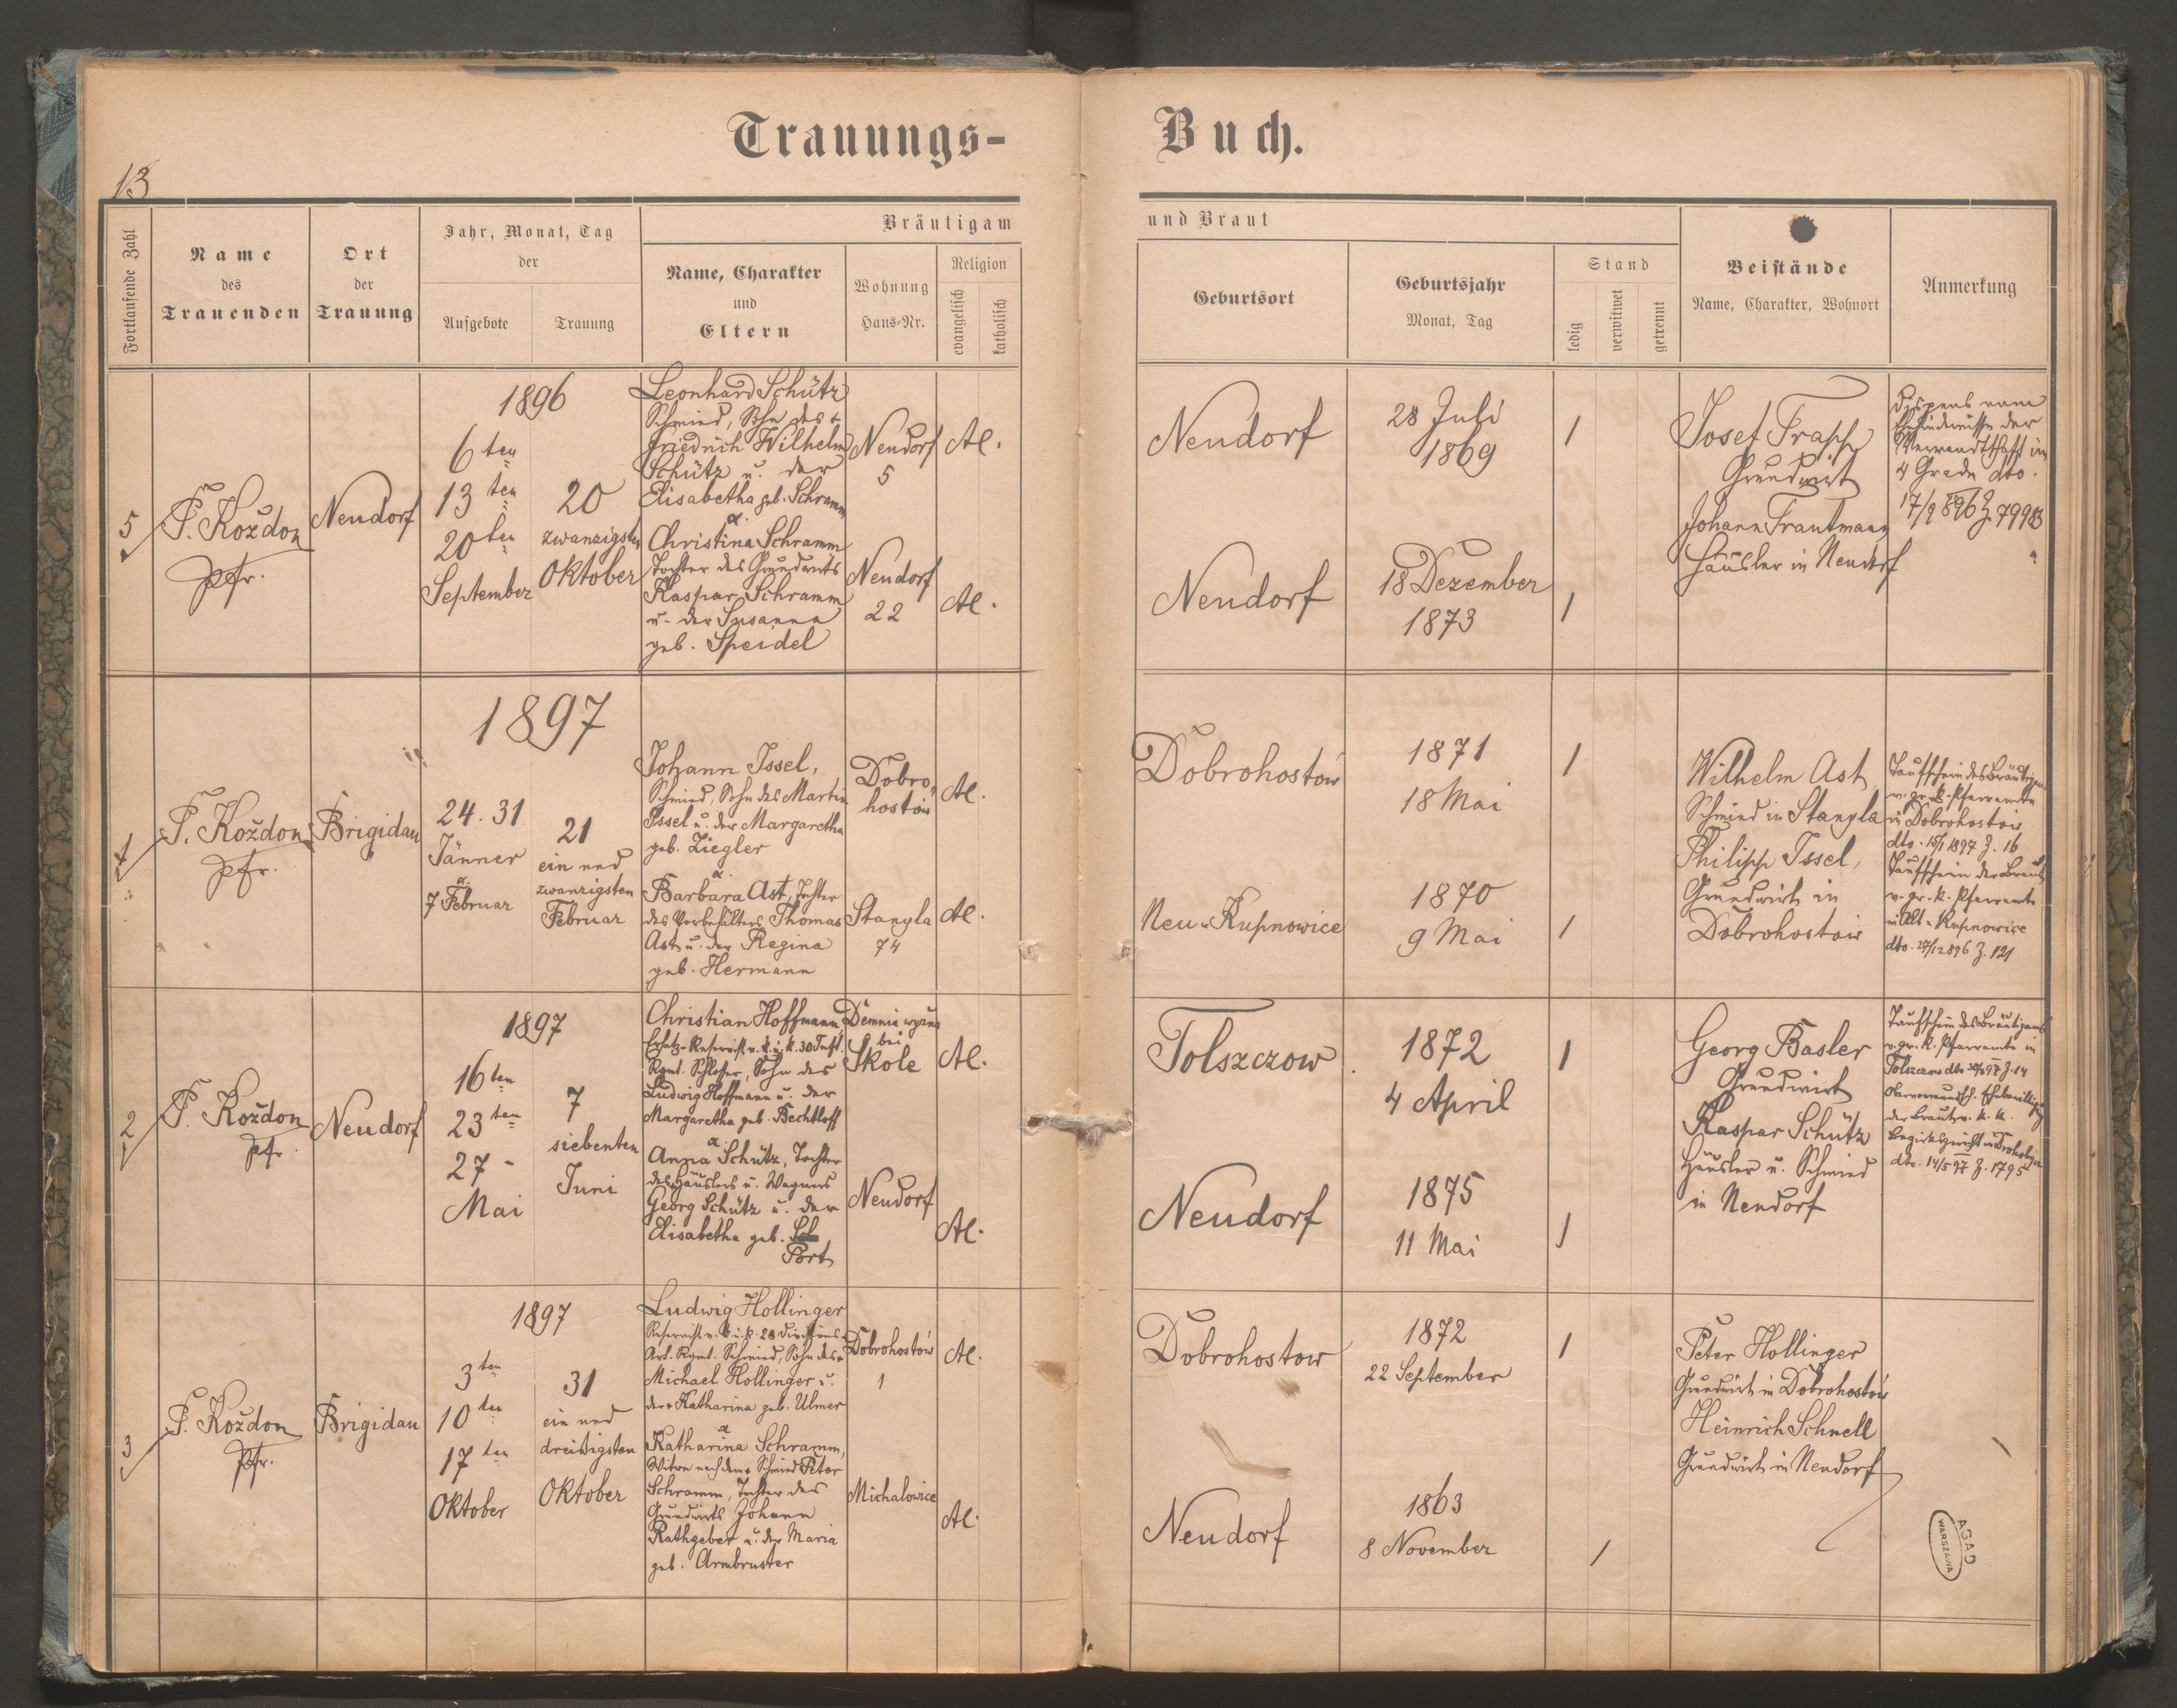 Trauungs-
Buch.
13
Fortlaufende Zahl
Name
des
Trauenden
Ort
der
Trauung
Jahr, Monat, Tag
der
Aufgebote
Trauung
Bräutigam
Name, Charakter
und
Eltern
Wohnung
Haus-Nr.
Religion
evangelisch
katholisch
und Braut
Geburtsort
Geburtsjahr
Monat, Tag
Stand
ledig
verwitwet
getrennt
Beistände
Name, Charakter, Wohnort
Anmerkung
5
P. Koždon
Pfr.
Neudorf
1896
6ten
13ten
20ten
September
20
zwanzigsten
Oktober
Leonhard Schütz
Schmied, Sohn des +
Friedrich Wilhelm
Schütz u. der
Elisabetha geb. Schramm
&
Christina Schramm
Tochter des Grundwirts
Kaspar Schramm
u. der Susanna
geb. Speidel
Neudorf
5
A.C.
Neudorf
22
A.C.
Neudorf
28 Juli
1869
1
Neudorf
18 Dezember
1873
1
Josef Trapp
Grundwirt
Johann Trautmann
Häusler in Neudorf
Dispens vom
Hindernisse der
Verwandtschaft im
4 Grade dto.
17/9 896 Z. 79983
1897
1
P. Koždon
Pfr.
Brigidau
24. 31
Jänner
&
7 Februar
21
ein und
zwanzigsten
Februar
Johann Issel,
Schmied, Sohn des Martin
Issel u. der Margaretha
geb. Ziegler
&
Barbara Ast, Tochter
des Vorbehälters Thomas
Ast u. der Regina
geb. Hermann
Dobro-
hostów
A.C.
Stanyla
74
A.C.
Dobrohostów
1871
18 Mai
1
Neu-Kupnowice
1870
9 Mai
1
Wilhelm Ast
Schmied in Stanyla
Philipp Issel,
Grundwirt in
Dobrohostów
Taufschein des Bräutigams
v. gr. k. Pfarramte
in Dobrohostow
dto. 15/1 1897 Z. 16
Taufschein der Braut
v. gr. k. Pfarramte
in Alt-Kupnowice
dto. 27/12 896 Z. 121
2
P. Koždon
Pfr.
Neudorf
1897
16ten
23ten
27-
Mai
7
siebenten
Juni
Christian Hoffmann,
Ersatz-Reservist v. k. u. k. 30 Inft.
Rgmt. Schlosser, Sohn des
Ludwig Hoffmann u. der
Margaretha geb. Bechtloff
&
Anna Schütz, Tochter
des Häuslers u. Wagners
Georg Schütz u. der
Elisabetha geb. Sch
Port
Demnia wyżna
bei
Skole
A.C.
Neudorf
A.C.
Tolszczow
1872
4 April
1
Neudorf
1875
11 Mai
1
Georg Basler
Grundwirt
Kaspar Schütz
Häusler u. Schmied
in Neudorf
Taufschein des Bräutigams
v. gr. k. Pfarramte in
Tolszczow dto 97 Z. 14
der Braut v. k. k.
Bezirksgericht in Drohobycz
dto. 14/5 97 Z. 1795
3
P. Koždon
Pfr.
Brigidau
1897
3ten
10ten
17ten
Oktober
31
ein und
dreißigsten
Oktober
Ludwig Hollinger
Reservist v. k. u. k. 28 Divisions-
Art. Rgmt. Schmied, Sohn des +
Michael Hollinger u.
der + Katharina geb. Ulmer
&
Katharina Schramm,
Witwe nach dem + Schmied Peter
Schramm, Tochter des
Grundwirts Johann
Rathgeber u. der Maria
geb. Armbruster
Dobrohostów
1
A.C.
Michalowice
A.C.
Dobrohostow
1872
22 September
1
Neudorf
1863
8 November
1
Peter Hollinger
Grundwirt in Dobrohostów
Heinrich Schnell
Grundwirt in Neudorf
AGAD
WARSZAWA